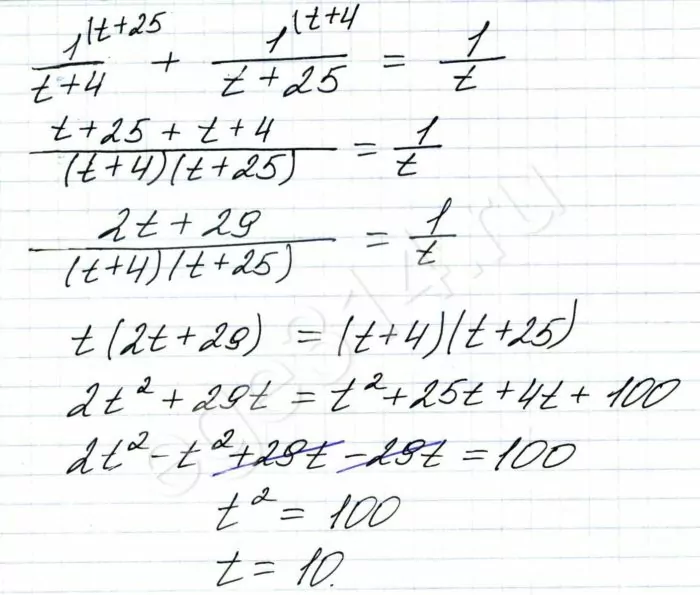 1^(t+25 / t+4 + 1^(t+4 / t+25 = 1/t
t+25+t+4 / (t+4)(t+25) = 1/t
2t+29 / (t+4)(t+25) = 1/t
t(2t+29) = (t+4)(t+25)
2t² + 29t = t² + 25t + 4t + 100
2t² - t² + 29t - 29t = 100
t² = 100
t = 10.
ege314.ru